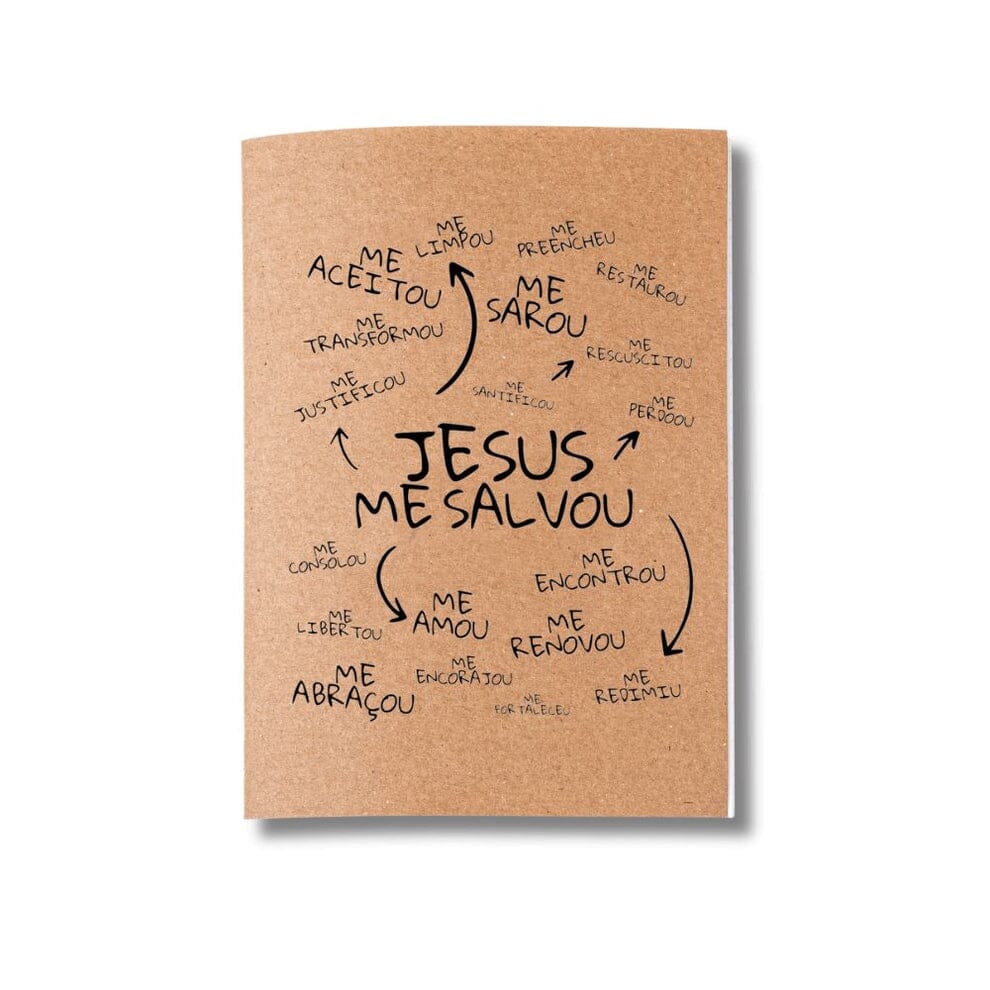 ME
LIMPOU
ME
PREENCHEU
ME
ACEITOU
ME
RESTAUROU
ME
SAROU
ME
TRANSFORMOU
ME
RESCUSCITOU
ME
JUSTIFICOU
ME
SANTIFICOU
ME
PERDOOU
JESUS
ME SALVOU
ME
CONSOLOU
ME
ENCONTROU
ME
AMOU
ME
LIBERTOU
ME
RENOVOU
ME
ABRAÇOU
ME
ENCORAJOU
ME
REDIMIU
ME
FORTALECEU